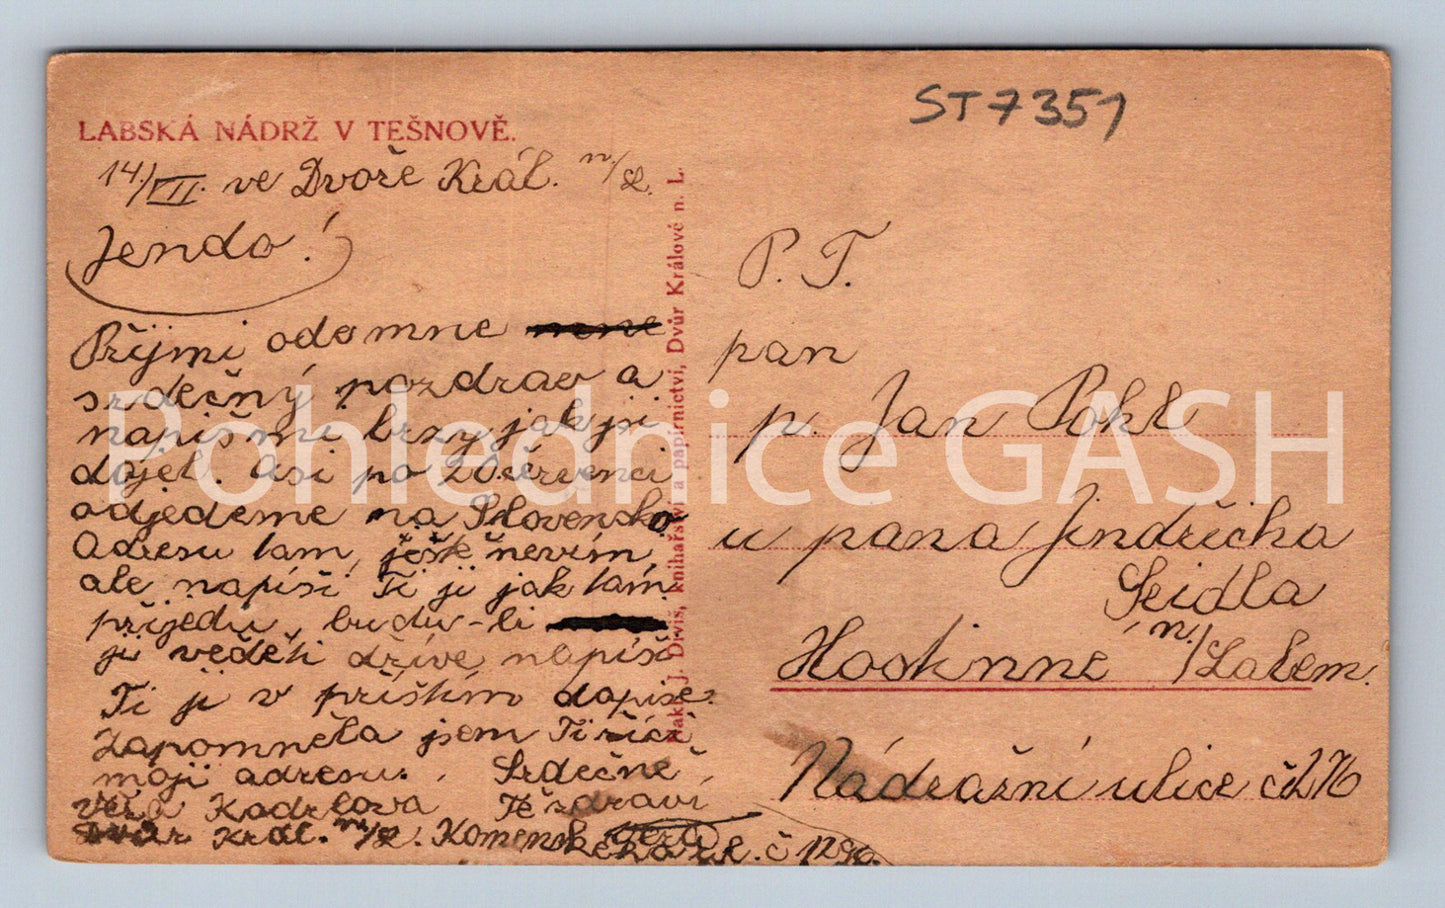 ST 7351
LABSKÁ NÁDRŽ V TEŠNOVĚ.
14./VII. ve Dvoře Král. n./L.
Jendo!
Přijmi odomne mne
srdečný pozdrav a
napiš mi brzy jak jsi
dojel. Asi po 20červenci
odjedeme na Slovensko
Adresu tam, ješť nevím,
ale napíši Ti ji jak tam
přijedu, budu-li
ji věděti dříve napíši
Ti ji v příštím dopise.
Zapomněla jsem Ti říci
moji adresu. Srdečně
Tě zdraví
Věra Kadrlova
Dvůr Král. n./L. Komenského č 1296.
Nakl. J. Diviš, knihařství a papírnictví, Dvůr Králové n. L.
P. T.
pan
p. Jan Pohl
u pana Jindřicha
Seidla
Hostinné n./Labem.
Nádražní ulice č 276
Pohlednice GASH